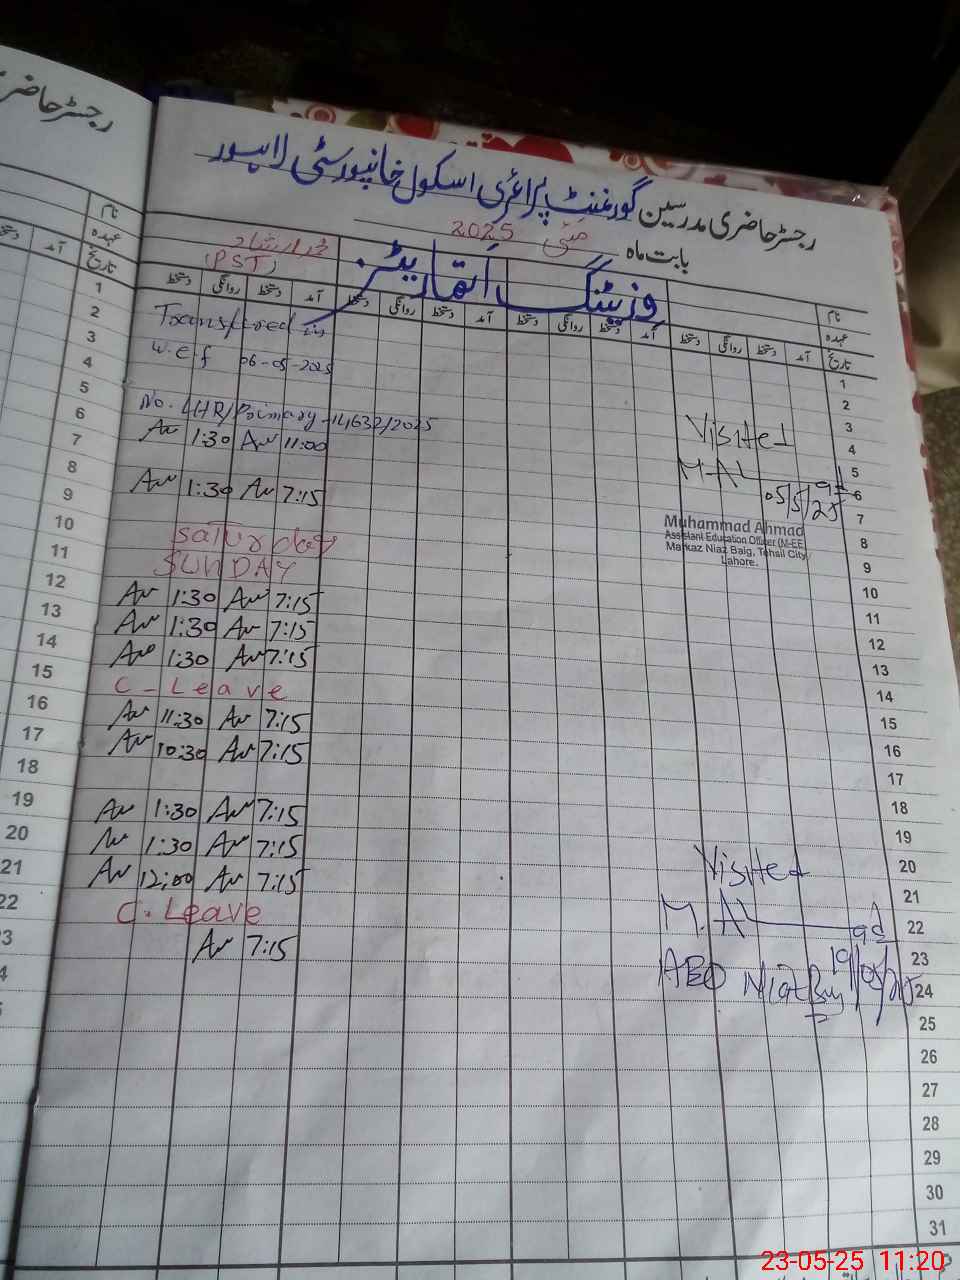 رجسٹر حاضری
رجسٹر حاضری مدرسین گورنمنٹ پرائمری اسکول خانپور سٹی لاہور
بابت ماہ مئی 2025
وزیٹنگ اتھارٹیز
(PST)
نام
عہدہ
تاریخ
نام
عہدہ
تاریخ
آمد دستخط روانگی دستخط آمد دستخط روانگی دستخط آمد دستخط روانگی دستخط آمد دستخط روانگی دستخط
Transfered
w.e.f 06-05-2025
No. LHR/Primary-14,632/2025
1:30 11:00
1:30 7:15
Saturday
SUNDAY
1:30 7:15
1:30 7:15
1:30 7:15
C-Leave
11:30 7:15
10:30 7:15
1:30 7:15
1:30 7:15
12:00 7:15
C.Leave
7:15
Visited
05/5/25
Muhammad Ahmad
Assistant Education Officer (M-EE)
Markaz Niaz Baig, Tehsil City
Lahore.
Visited
AEO Niaz Baig
19/05/25
1
2
3
4
5
6
7
8
9
10
11
12
13
14
15
16
17
18
19
20
21
22
23
24
25
26
27
28
29
30
31
1
2
3
4
5
6
7
8
9
10
11
12
13
14
15
16
17
18
19
20
21
22
23-05-25 11:20